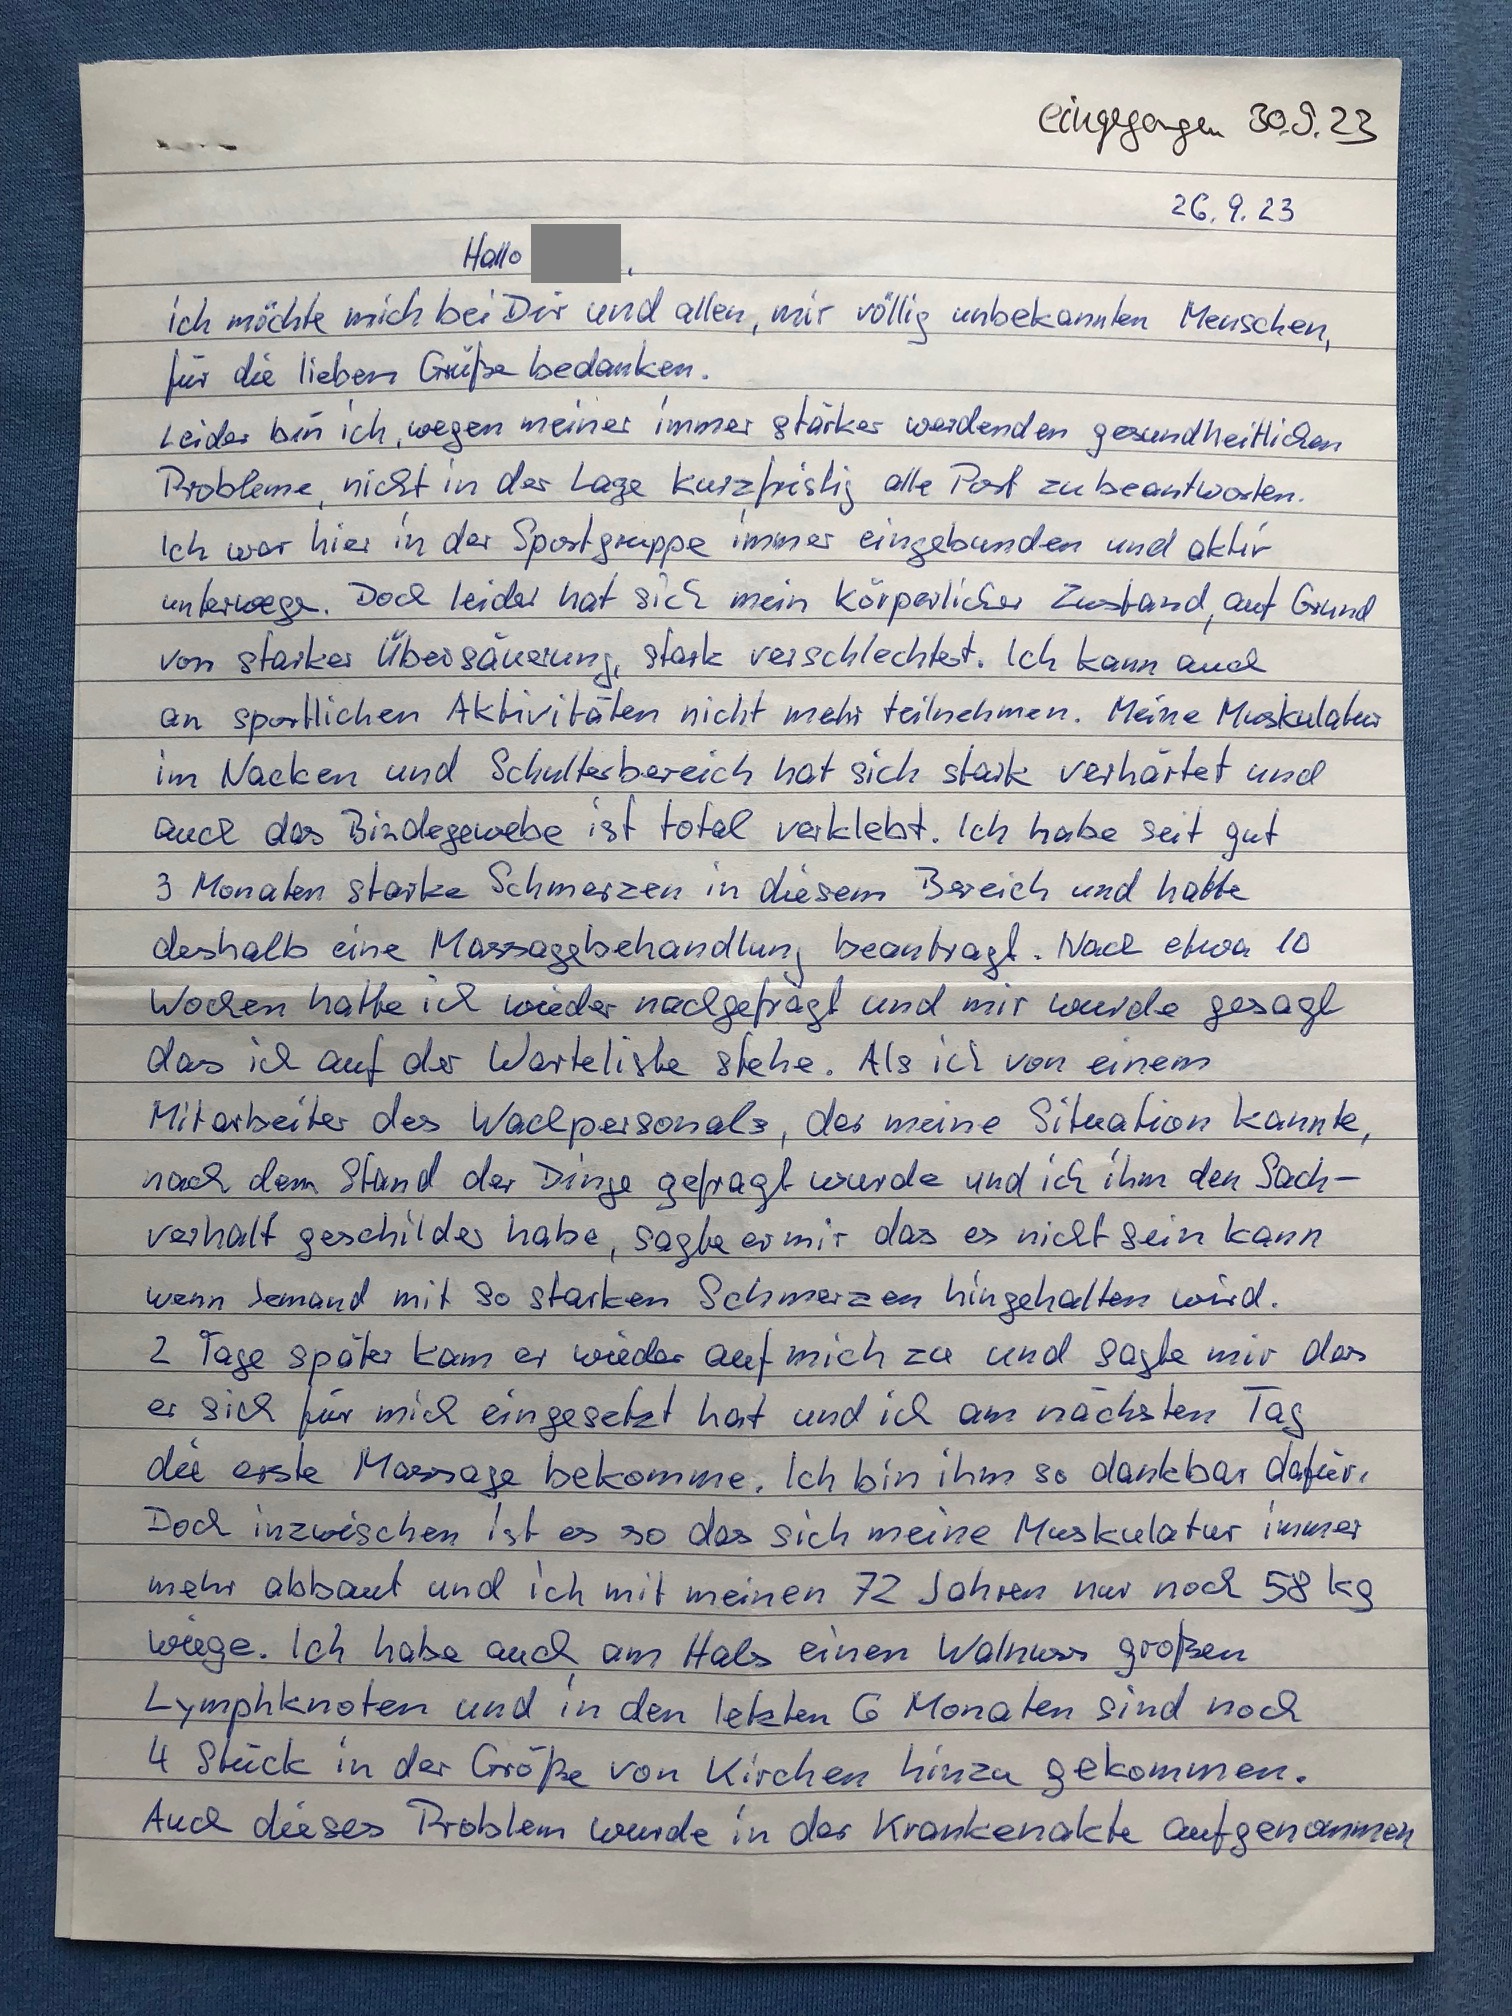 eingegangen 30.9.23
26.9.23
Hallo
ich möchte mich bei Dir und allen, mir völlig unbekannten Menschen,
für die lieben Grüße bedanken.
Leider bin ich, wegen meiner immer stärker werdenden gesundheitlichen
Probleme, nicht in der Lage kurzfristig alle Post zu beantworten.
Ich war hier in der Sportgruppe immer eingebunden und aktiv
unterwegs. Doch leider hat sich mein körperlicher Zustand, auf Grund
von starker Übersäuerung, stark verschlechtert. Ich kann auch
an sportlichen Aktivitäten nicht mehr teilnehmen. Meine Muskulatur
im Nacken und Schulterbereich hat sich stark verhärtet und
auch das Bindegewebe ist total verklebt. Ich habe seit gut
3 Monaten starke Schmerzen in diesem Bereich und hatte
deshalb eine Massagebehandlung beantragt. Nach etwa 10
Wochen hatte ich wieder nachgefragt und mir wurde gesagt
das ich auf der Warteliste stehe. Als ich von einem
Mitarbeiter des Wachpersonals, der meine Situation kannte,
nach dem Stand der Dinge gefragt wurde und ich ihm den Sach-
verhalt geschilder habe, sagte er mir das es nicht sein kann
wenn Jemand mit so starken Schmerzen hingehalten wird.
2 Tage später kam er wieder auf mich zu und sagte mir das
er sich für mich eingesetzt hat und ich am nächsten Tag
die erste Massage bekomme. Ich bin ihm so dankbar dafür.
Doch inzwischen ist es so das sich meine Muskulatur immer
mehr abbaut und ich mit meinen 72 Jahren nur noch 58 kg
wiege. Ich habe auch am Hals einen Walnuss großen
Lymphknoten und in den letzten 6 Monaten sind noch
4 Stück in der Größe von Kirchen hinzu gekommen.
Auch dieses Problem wurde in der Krankenakte aufgenommen